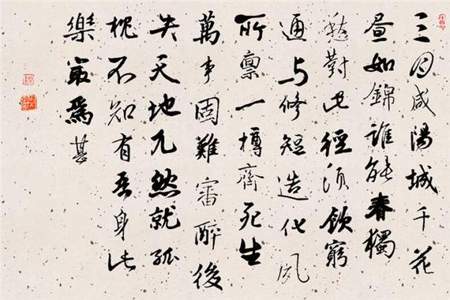 三月咸陽城千花
晝如錦誰能春獨
愁對此徑須飲窮
通與修短造化夙
所稟一樽齊死生
萬事固難審醉後
失天地兀然就孤
枕不知有吾身此
樂最爲甚